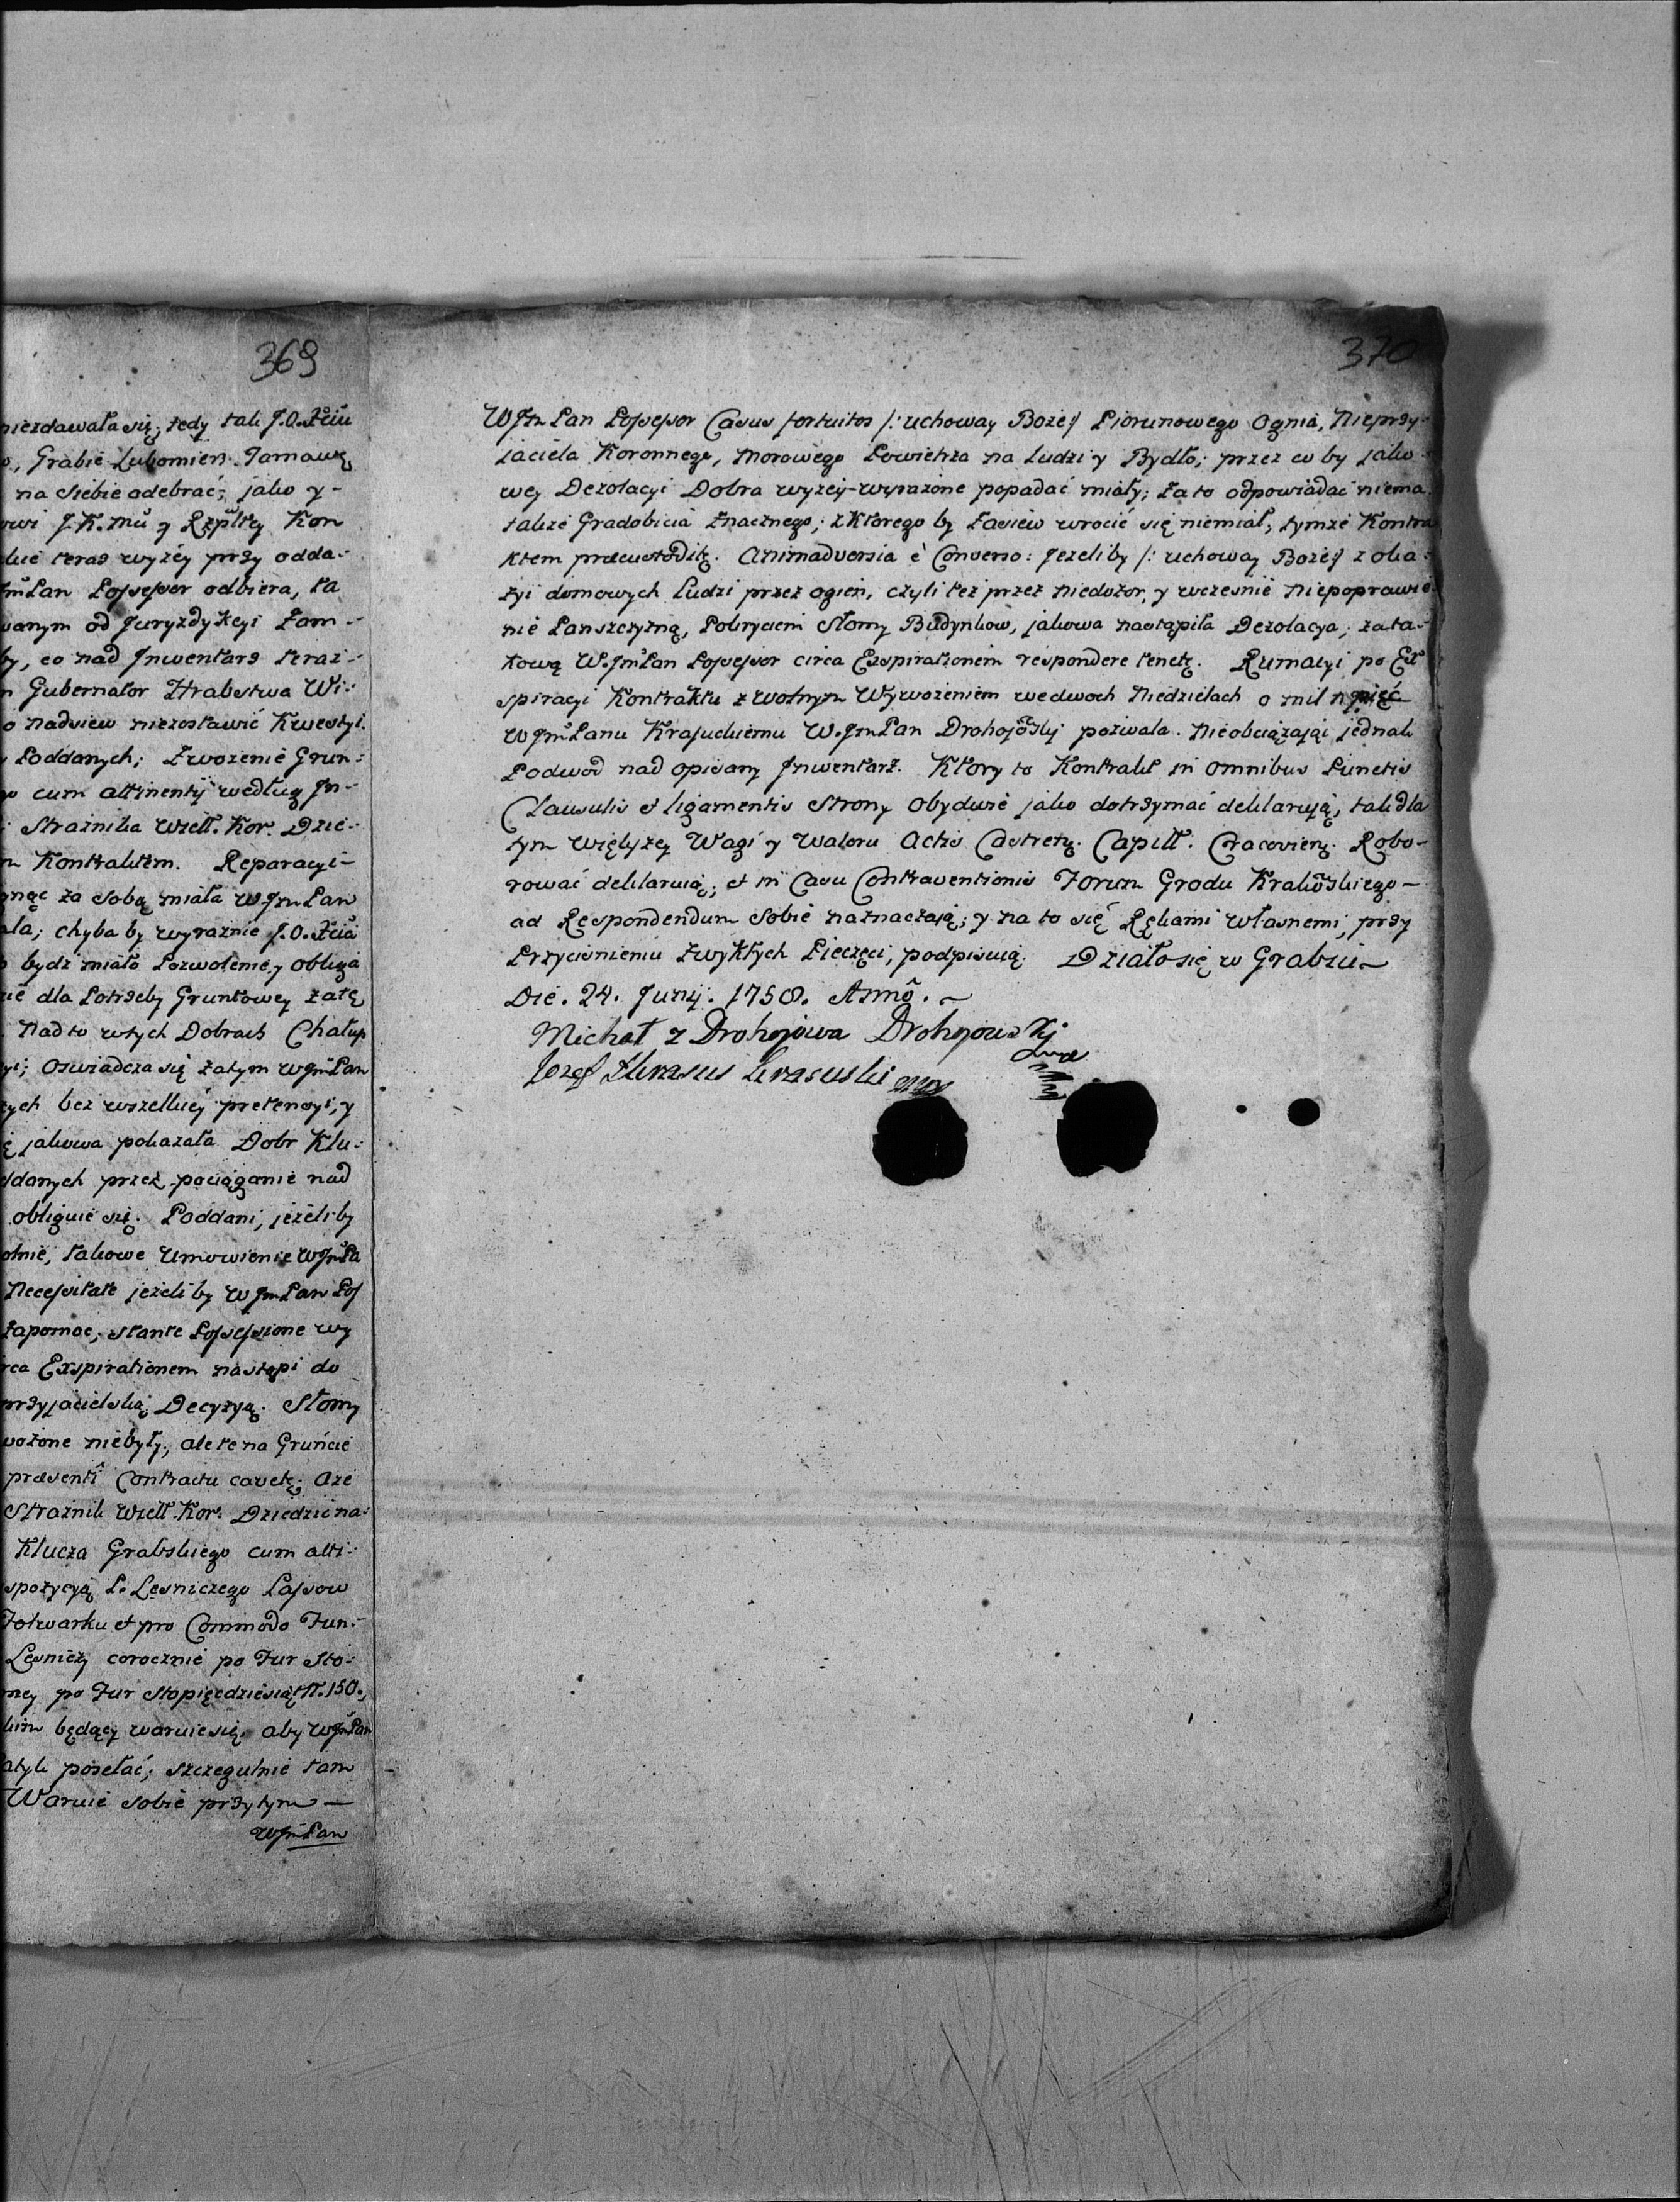 369
niezdawała się; tedy tak J.O. Xciu
Grabie Lubomien. Tarnawę
na siebie odebrać; jako y-
owi J.K.mu y Rzpltey Kon
teras wyżey przy odda-
JmPan Possessor odbiera, ta
wanym od Juryzdykcyi Zam-
by, co nad Jnwentars teraz-
Gubernator Hrabstwa Wi-
o nadsiew niezostawić Kwestyi.
Poddanych; Zwożenie Grun-
cum attinentij według Jn-
Straznika Wiell. Kor. Dzie-
Kontraktem. Reparacyi-
gnąc za sobą miała WJmPan
ała; chyba by wyraznie J.O. Xcia
bydz miało Pozwolenie, y obliga
dla Potrzeby Gruntowey zatę
Nadto wtych Dobrach Chałup
yi; oswiadcza się zatym WJmPan
tych bez wszelkiey pretensyi, y
jakowa pokazała Dobr Klu-
ddanych przez pociąganie nad
obliguie się. Poddani, jeżeliby
olnie, takowe Umowienie WJmPa
Necessitate jeżeliby WJmPan Pos
zapomoc, stante Possessione wy
rca Exspirationem nastąpi do
przyjacielską Decyzyą. Słomy
wożone niebyły, ale te na Gruńcie
præsenti Contractu cavetę; aże
Straznik Wiell. Kor. Dziedzic na-
Klucza Grabskiego cum atti-
spozycyą P. Lesniczego Lassow
Folwarku et pro Commodo Fun-
Lesniczy corocznie po Fur Sto-
ney po Fur Stopięcdziesiąt N. 150.,
kim będący waruie się, aby WJmPan
posełać; szczegulnie tam
Waruie sobie przytym —
WJmPan
370
WJm Pan Possessor Casus fortuitos /: uchoway Boże :/ Piorunowego Ognia, Nieprzy-
jaciela Koronnego, Morowego Powietrza na Ludzi y Bydło; przez co by jako-
wey Dezolacyi Dobra wyżey-wyrażone popadać miały; zato odpowiadać niema.
także Gradobicia znacznego; z Ktorego by Zasiew wrocić się niemiał, tymże Kontra
ktem præcustoditę. Animadversia è Converso: Jeżeliby /: uchoway Boże :/ z oka-
zyi domowych Ludzi przez ogień, czyli też przez niedozor, y wczesnie Niepoprawie-
nie Panszczyzną, Pokryciem Słomy Budynkow, jakowa nastąpiła Dezolacya; zata-
kową W.JmPan Possessor circa Exspirationem respondere tenetę. Rumacyi po Ex
spiracyi Kontraktu z wolnym Wywożeniem wedwoch Niedzielach o mil n pięć
WJmPanu Krasuckiemu W.JmPan Drohojoski pozwala. Nieobciążaiąc jednak
Podwod nad opisany Jnwentarz. Ktory to Kontrakt in omnibus Punctis
Clausulis et ligamentis Strony obydwie jako dotrzymać deklaruią, tak dla
tym większey Wagi y Waloru Actis Castreń. Capitl. Cracovień. Robo-
rować deklaruią; et in Casu Contraventionis Forum Grodu Krakoskiego —
ad Respondendum sobie naznaczaią; y na to się Rękami własnemi, przy
Przycisnieniu zwykłych Pieczęci, podpisuią. Działo się w Grabiu —
Die. 24. Junij. 1758. Annô. —
Michał z Drohojowa Drohojowskj
Jozef Krasus Krasuski